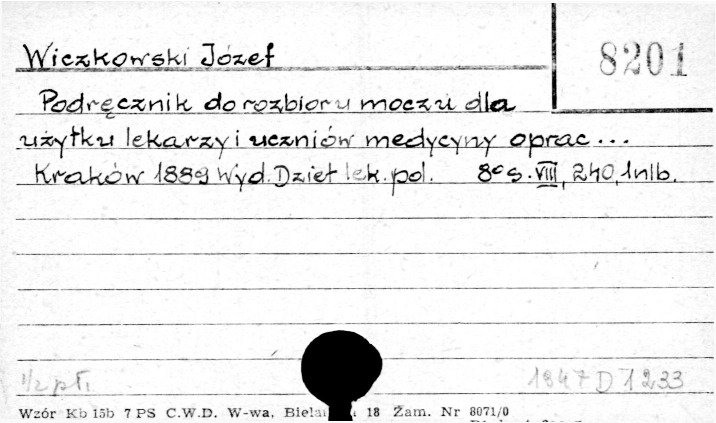 Wiczkowski Józef
8201
Podręcznik do rozbioru moczu dla
użytku lekarzy i uczniów medycyny oprac...
Kraków 1889 Wyd. Dzieł lek. pol. 8° s. VIII, 240, 1nlb.
1/2 pł.
1947 D 1233
Wzór Kb 15b 7 PS C.W.D. W-wa, 18 Zam. Nr 8071/0